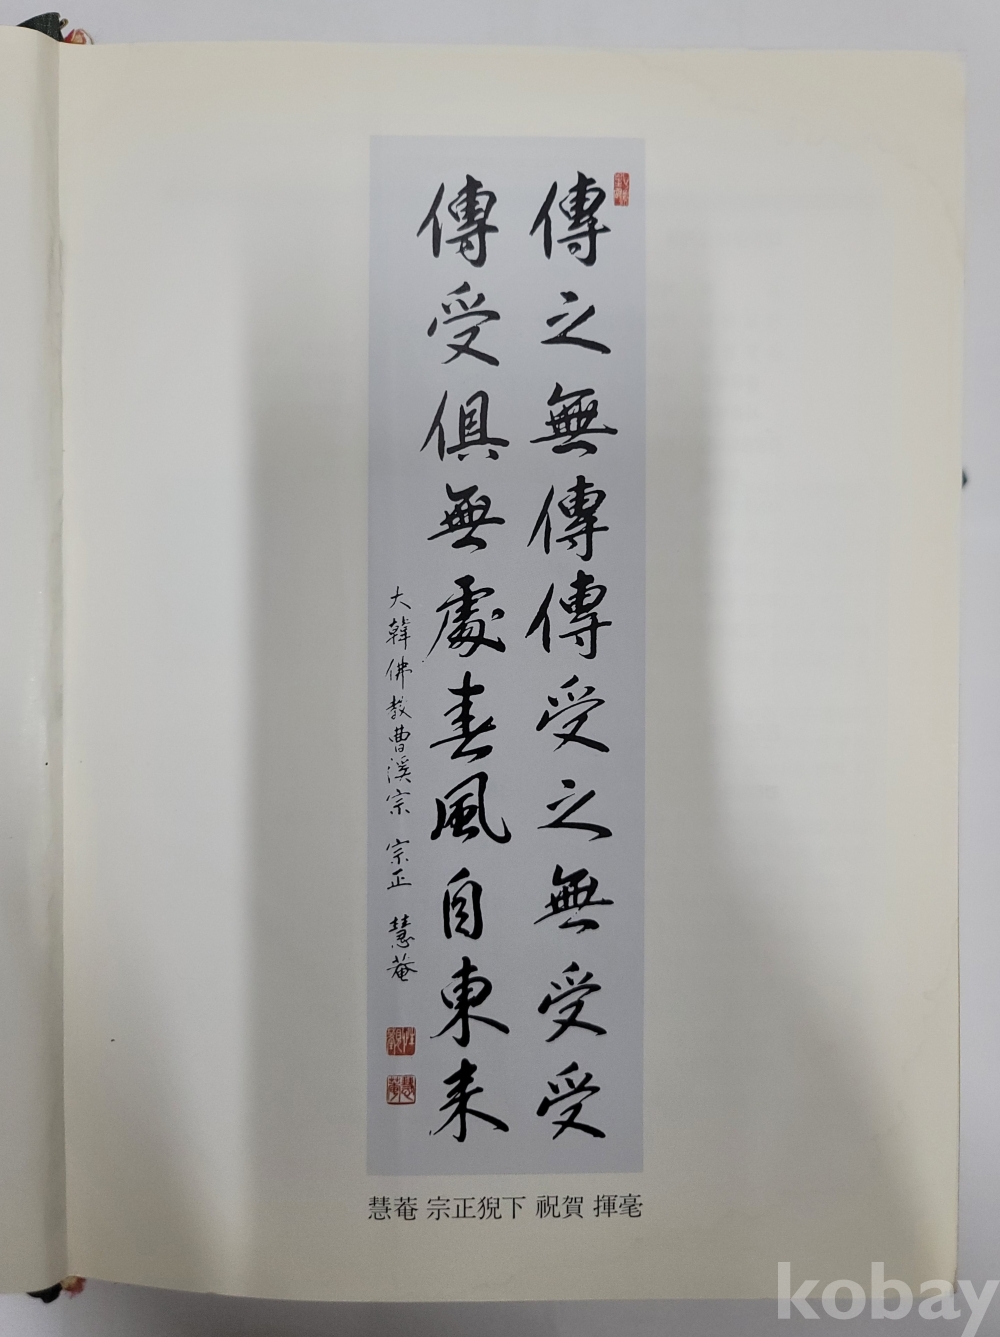 傳之無傳傳受之無受受
傳受俱無處春風自東来
大韓佛教曹溪宗 宗正 慧菴
慧菴 宗正猊下 祝賀 揮毫
kobay